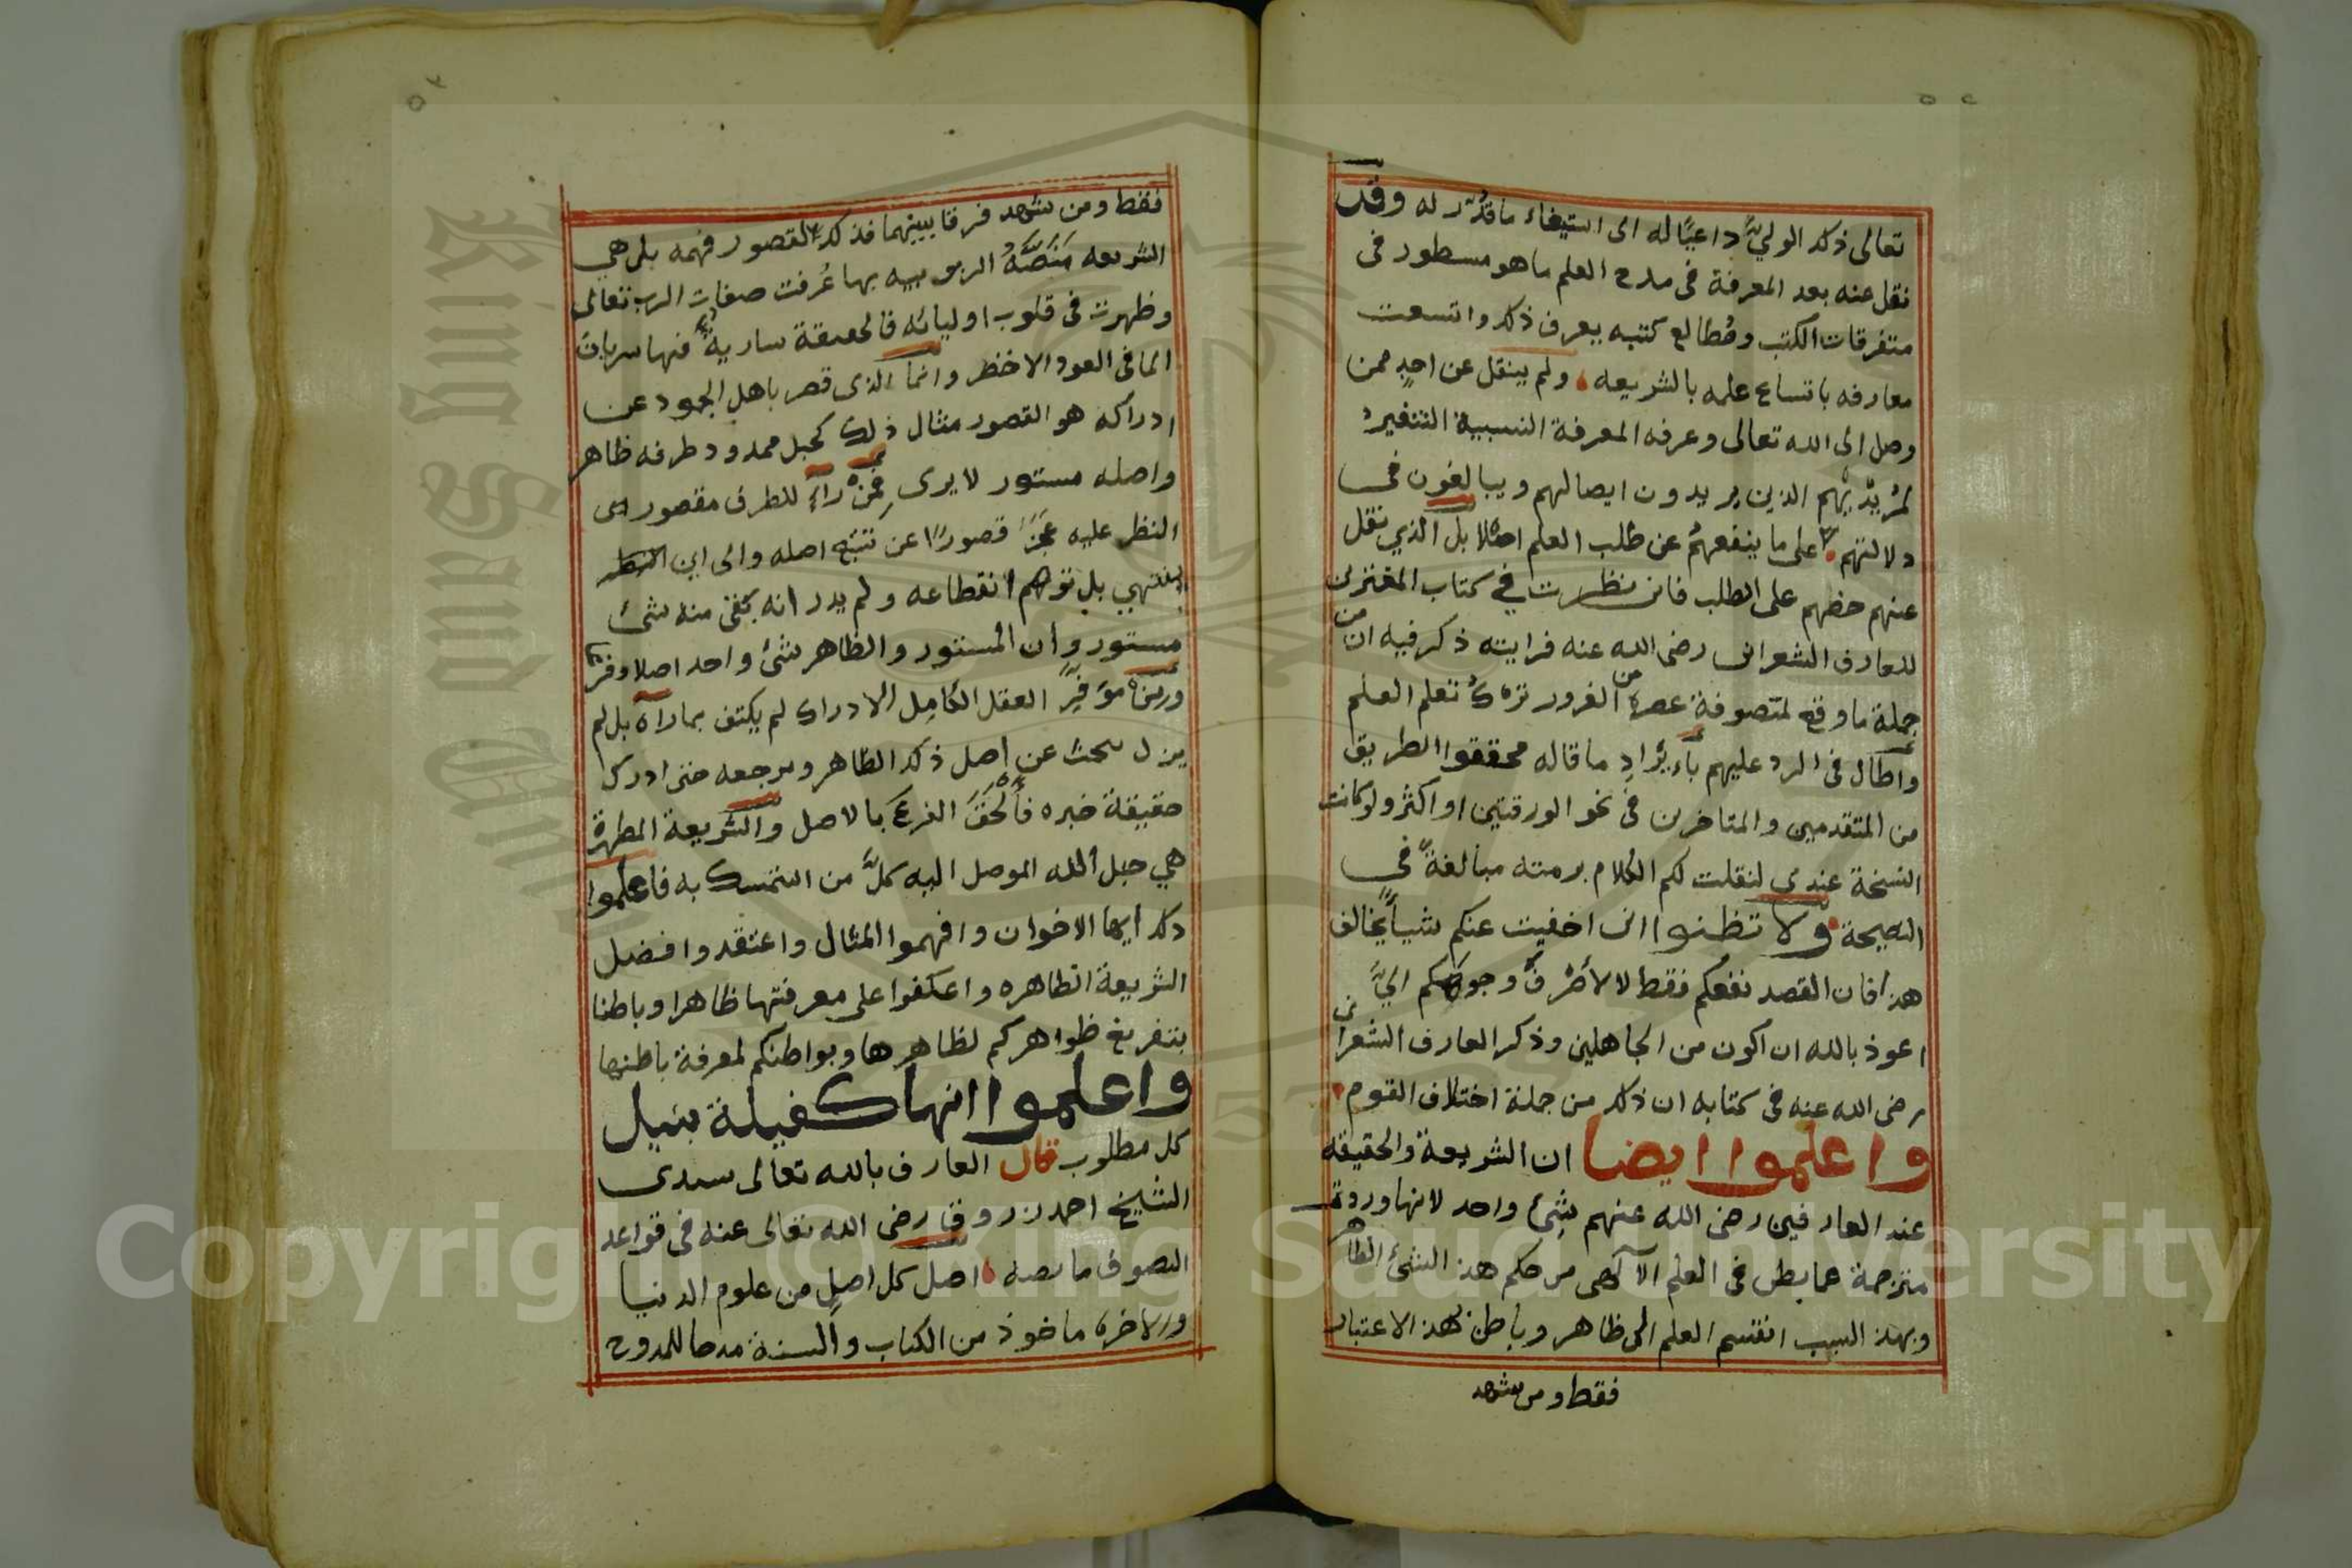 ٥٢
تعالى ذلك الولي داعيًا له الى استيفاء ما قدّر له وقد
نقل عنه بعد المعرفة فى مدح العلم ما هو مسطور فى
متفرقات الكتب ومُطالع كتبه يعرف ذلك واتسعت
معارفه باتساع علمه بالشريعه ولم ينقل عن احدٍ ممن
وصل الى الله تعالى وعرفه المعرفة النسبية التنفير
لمُريديهم الذين يريدون ايصالهم ويبالغون فى
دلالتهم على ما ينفعهم عن طلب العلم اصلا بل الذي نقل
عنهم حضهم على الطلب فانى نظرت في كتاب المغترين
للعارف الشعرانى رضى الله عنه فرايته ذكر فيه ان من
جملة ما وقع لمتصوفة عصره من الغرور تركُ تعلم العلم
واطال فى الرد عليهم بايراد ما قاله محققوا الطريق
من المتقدمين والمتاخرين فى نحو الورقتين او اكثر ولو كانت
النسخة عندى لنقلت لكم الكلام برمته مبالغةً فى
النصيحة ولا تظنوا انى اخفيت عنكم شيأ يخالف
هذا فان القصد نفعكم فقط لا لأصرف وجوهكم اليّ
اعوذ بالله ان اكون من الجاهلين وذكر العارف الشعرانى
رضى الله عنه فى كتابه ان ذلك من جملة اختلاف القوم
واعلموا ايضا ان الشريعة والحقيقه
عند العارفين رضى الله عنهم شئ واحد لانها وردت
مترجمة عما بطن فى العلم الآلهى من حكم هذ الشئ الظاهر
وبهذ السبب انقسم العلم الى ظاهر وباطن لهذ الاعتبار
فقط ومن شهد
٥٣
فقط ومن شهد فرقا بينهما فذلك لقصور فهمه بل هي
الشريعه مَنَصَّةُ الربوبيه بها عُرفت صفات الرب تعالى
وظهرت فى قلوب اوليائه فالحقيقة سارية فيها سريان
الما فى العود الاخضر وانما الذى قصر باهل الجمود عن
ادراكه هو القصور مثال ذلك كحبل ممدود طرفه ظاهر
واصله مستور لا يرى فمن راءٍ للطرف مقصور
النظر عليه عَجَزَ قصورًا عن تتبع اصله والى اين
ينتهي بل توهم انقطاعه ولم يدر انه بقى منه شئ
مستور وان المستور والظاهر شئ واحد اصلا وفرعا
العقل الكامل الادراك لم يكتف بما رآه بل لم
يزل يبحث عن اصل ذلك الظاهر ومرجعه حتى ادرك
حقيقة خبره فألحَقَ الفرعَ بالاصل والشريعة المطهرة
هي حبل الله الموصل اليه كلَّ من استمسك به فاعلموا
ذلك ايها الاخوان وافهموا المثال واعتقدوا فضل
الشريعة الطاهره واعكفوا على معرفتها ظاهرا وباطنا
بتفريغ ظواهركم لظاهرها وبواطنكم لمعرفة باطنها
واعلموا انها كفيلة بنيل
كل مطلوب قال العارف بالله تعالى سيدى
الشيخ احمد زروق رضى الله تعالى عنه فى قواعد
التصوف ما نصه اصل كل اصل من علوم الدنيا
والاخره ماخوذ من الكتاب والسنة مدحا للممدوح
Copyright © King Saud University
King Saud University
1957